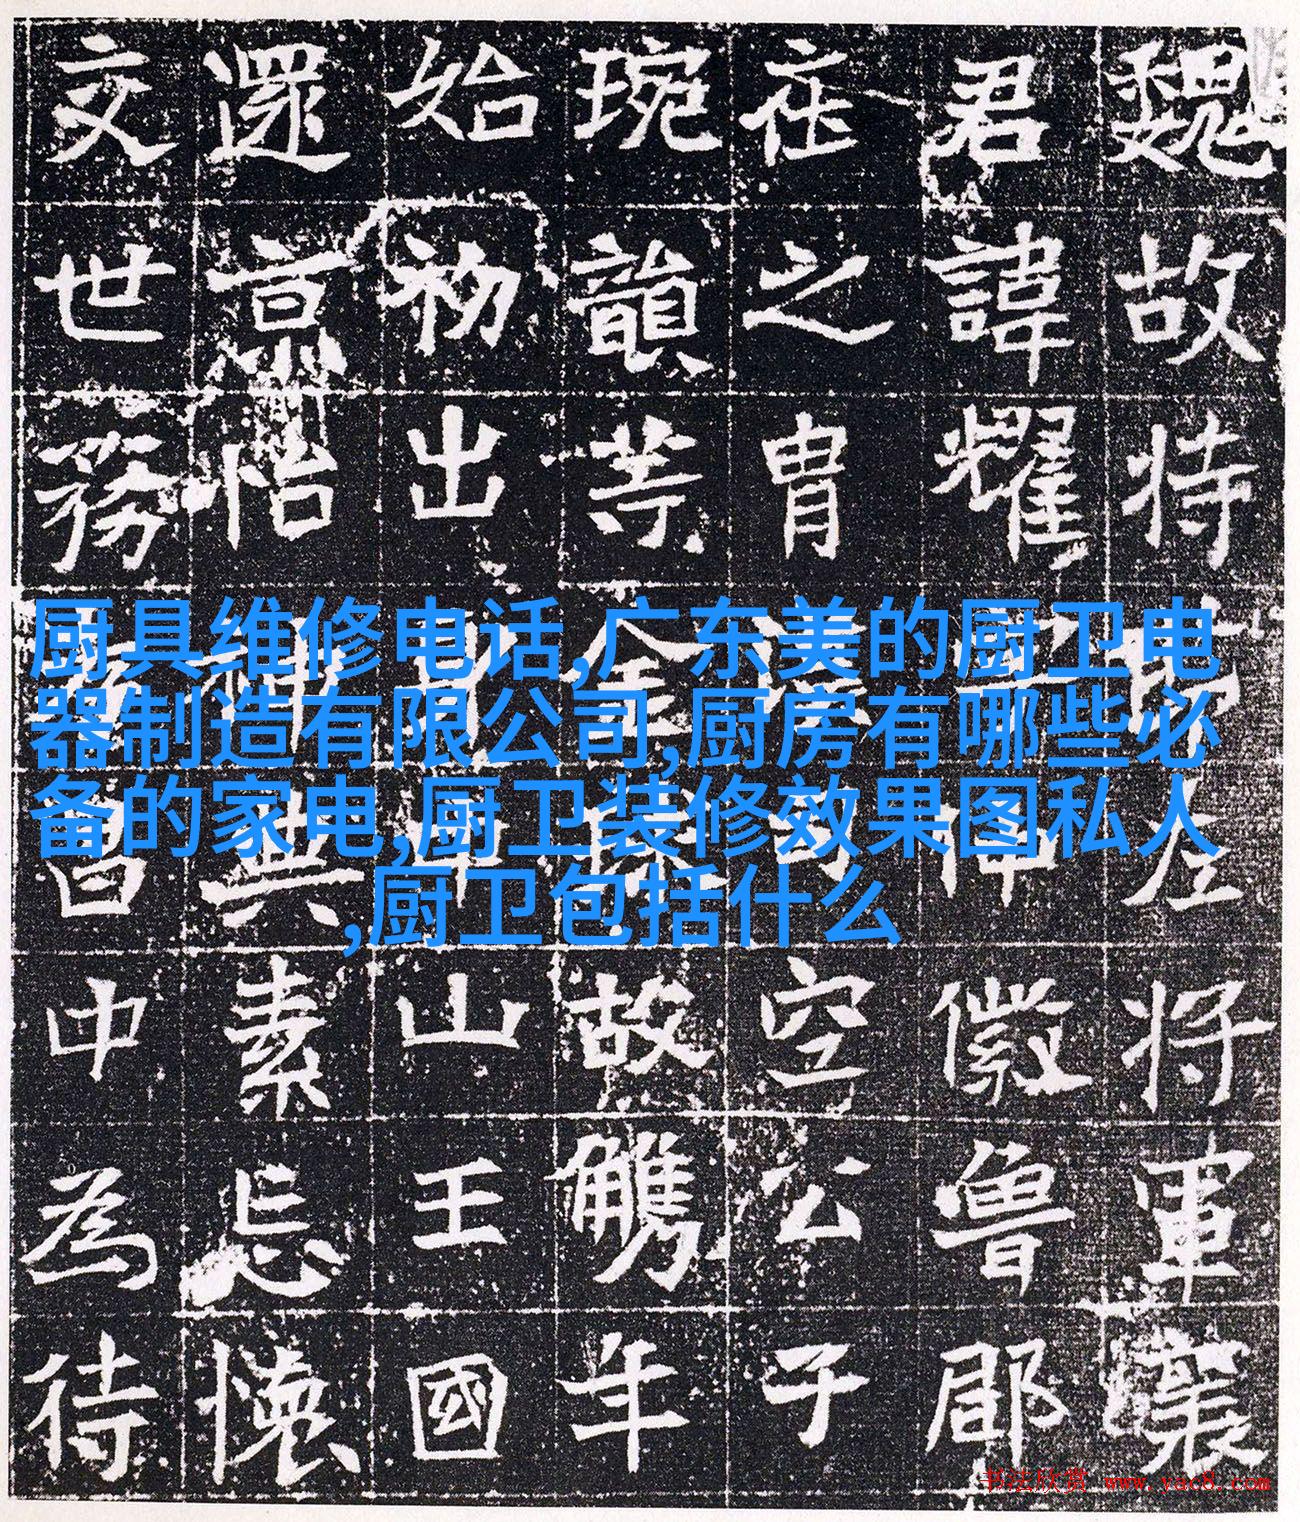 魏故持左將軍襄
君諱耀徽魯郡
之胄空公子
琬韻等金故觿年
始初出山王國
還京怡神典素忘懷
交世務中為待
厨具维修电话,广东美的厨卫电
器制造有限公司,厨房有哪些必
备的家电,厨卫装修效果图私人
,厨卫包括什么
书法欣赏 www.yac8.com